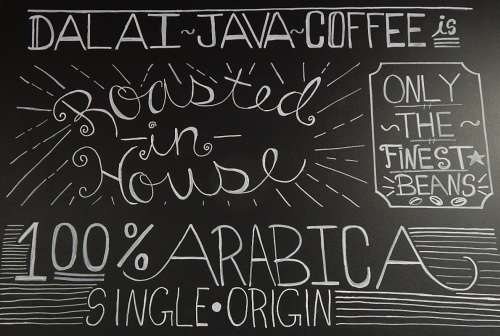 DALAI~JAVA~COFFEE is
Roasted
-in-
House
ONLY
~THE~
FINEST★
BEANS
100% ARABICA
SINGLE•ORIGIN